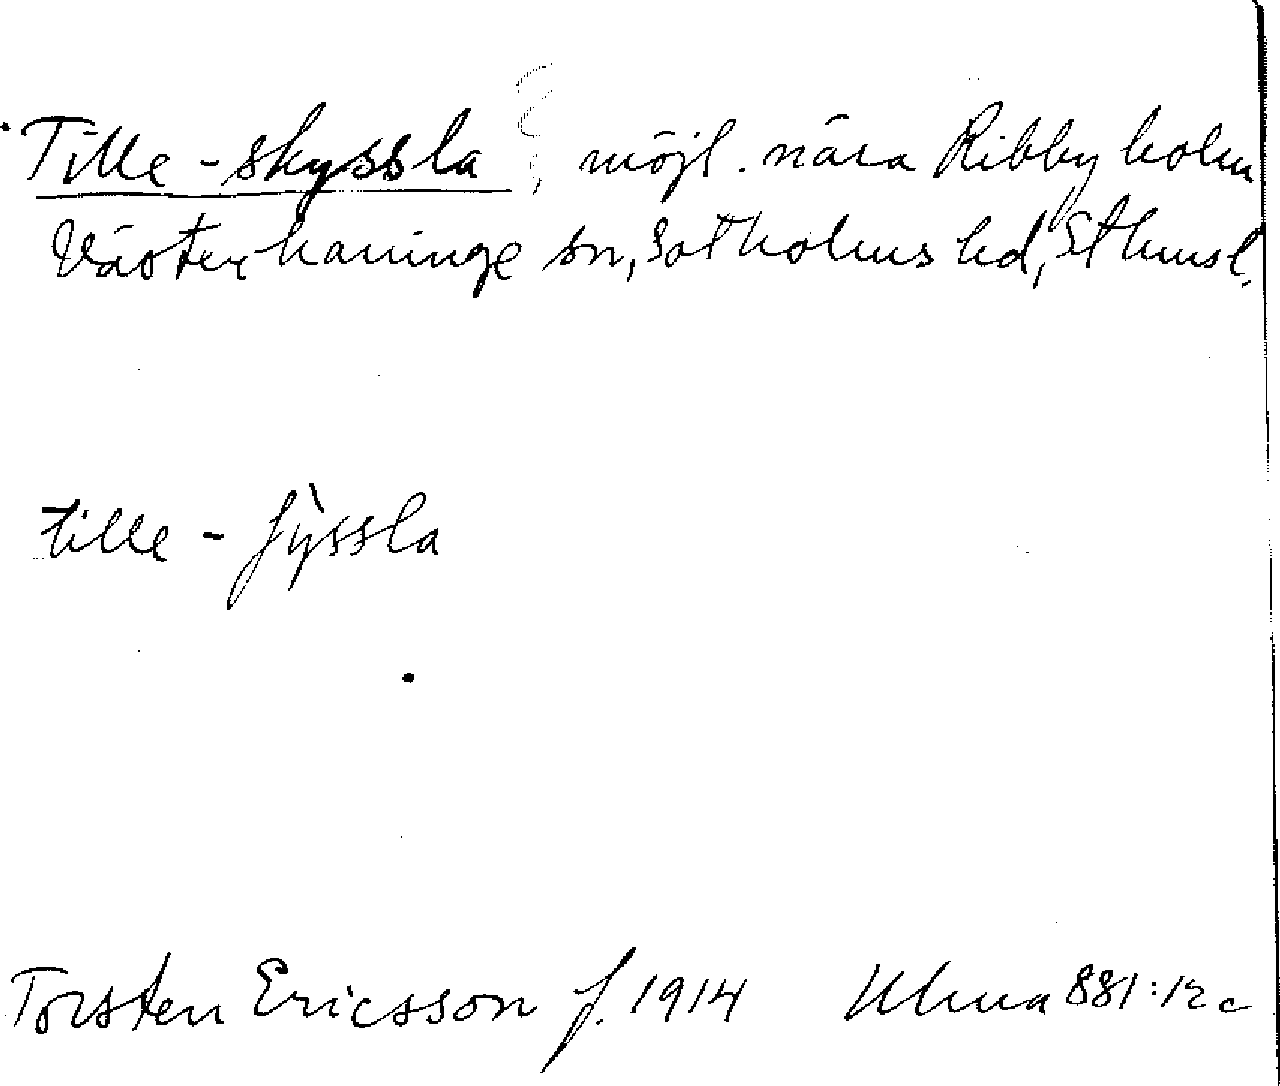 Tille-skyssla?, möjl. nära Ribbyholm
Västerhaninge sn, Sotholms hd, Sthmsl.
tille - ʃỳssla
Torsten Ericsson f. 1914 Ulma 881:12c